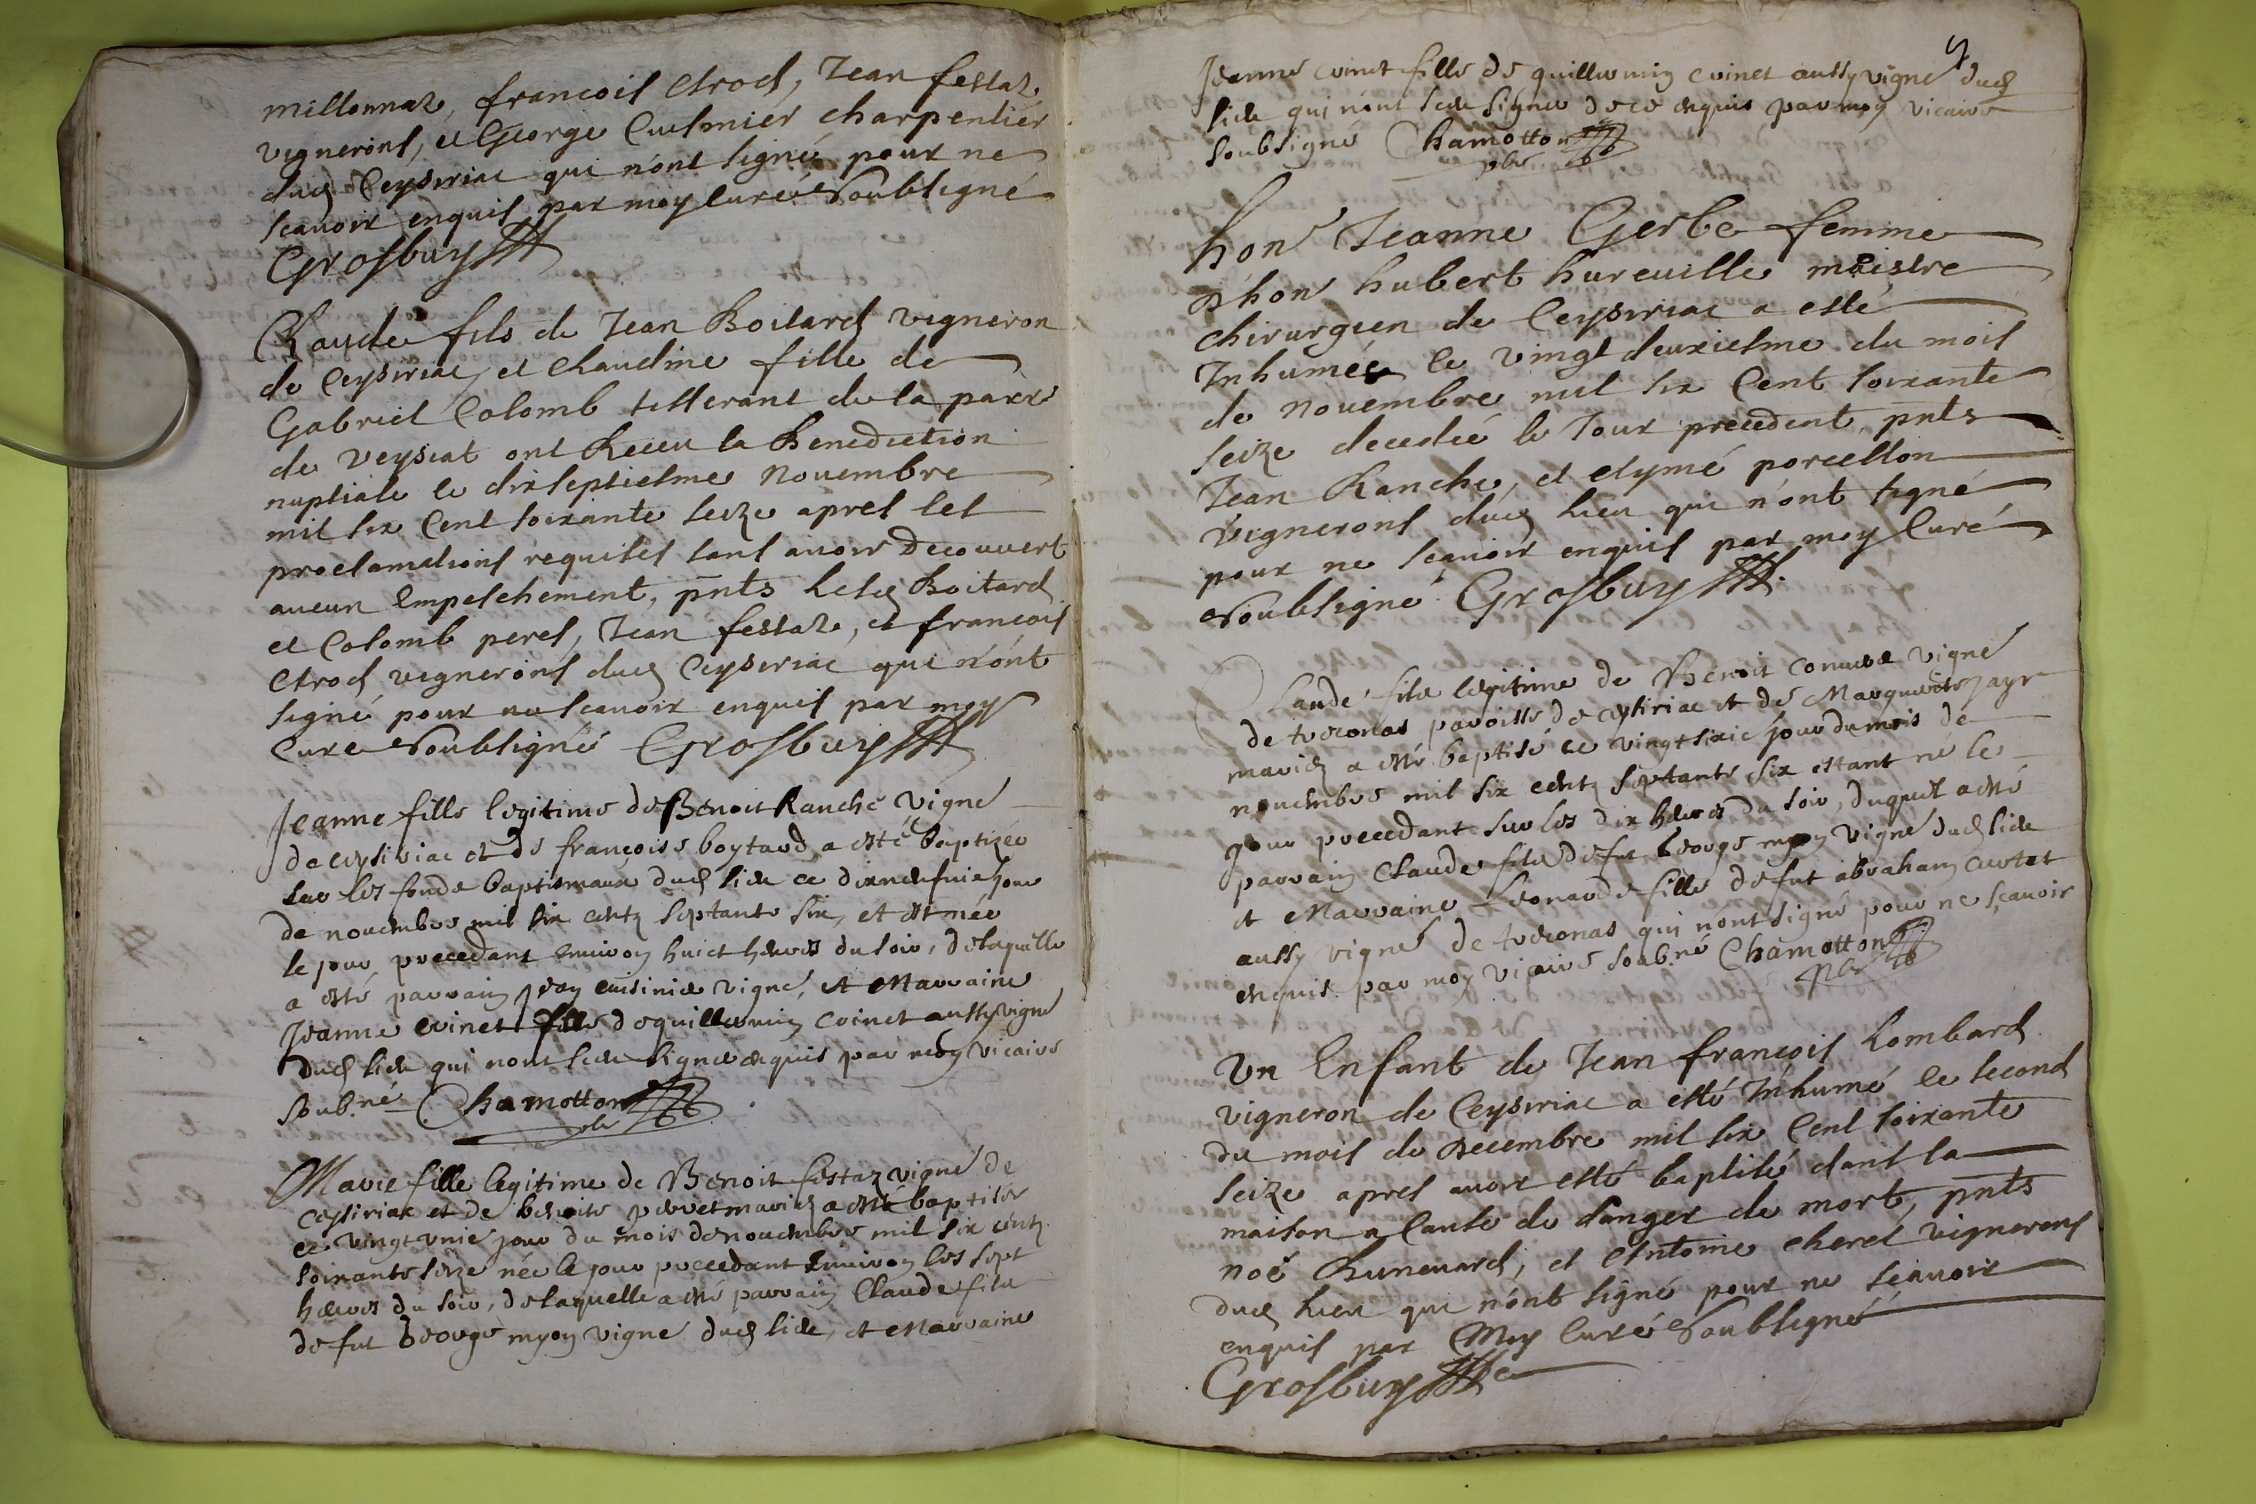 millonnaz, francois Arod, Jean festaz
vignerons, et George Cuesmier charpentier
dud Ceyseriac qui n'ont signé pour ne
scauoir enquis par moy curé soubsigné
Grosbuy
Claude fils de Jean Boitard vigneron
de Ceyseriac, et Claudine fille de
Gabriel Colomb tisserant de la parre
de Veysiat ont Receu la Benediction
nuptiale le dixseptiesme Nouembre
mil six Cent soixante seize apres les
proclamations requises sans auoir decouuert
aucun Empeschement, pnts lesd Boitard
et Colomb peres, Jean festaz, et francois
Arod vignerons dud Ceyseriac qui n'ont
signé pour ne scauoir enquis par moy
Curé soubsigné Grosbuy
Jeanne fille legitime de Benoit Ranche vigne
de ceysiriac et de françoise boytard a esté baptizée
sur les fonds baptismaux dud lieu ce dixneufuie jour
de nouembre mil six centz septante six, et est née
le jour precedant enuiron huict heures du soir, de laquelle
a esté parrain jean cuisinier vigne, et Marraine
Jeanne coinet fille de guillermin coinet aussy vigne
dud lieu qui nont sceu signer enquis par moy vicaire
soub.né Chamotton
pbr
Marie fille legitime de Benoit festaz vigne de
ceysiriac et de benoite peruet mariez a esté baptisée
ce vingt vnie jour du mois de nouembre mil six centz
soixante seize née le jour precedant enuiron les sept
heures du soir, de laquelle a esté parrain Claude filz
de fut George myon vigne dud lieu, et Marraine
Jeanne coinet fille de guillermin coinet aussy vigne dud
lieu qui n'ont sceu signer de ce enquis par moy vicaire
soubsigné Chamotton
pbr
hon Jeanne Gerbe femme
d'hon hubert hureuille maistre
chirurgien de Ceyseriac a esté
Inhumée le vingt deuxiesme du mois
de nouembre mil six Cent soixante
seize decedée le Jour precedent, pnts
Jean Ranche, et Aymé porcellon
vignerons dud lieu qui n'ont signé
pour ne scauoir enquis par moy Curé
soubsigné Grosbuy
Claude filz legitime de Benoit conuert vigne
de treconas paroisse de ceysiriac et de Marguerite jayr
mariez a esté baptisé ce vingt sixie jour du mois de
nouembre mil six centz septante six estant né le
jour precedant sur les dix heures du soir, duquel a esté
parrain Claude filz de fut George myon vigne dud lieu
et Marraine Leonarde fille de fut abraham curtet
aussy vigne de treconas qui n'ont signé pour ne sçauoir
enquis par moy vicaire soub.né Chamotton
pbr
Un Enfant de Jean francois Lombard
vigneron de Ceyseriac a esté Inhumé le second
du mois de Decembre mil six Cent soixante
seize apres auoir esté baptisé dans la
maison a Cause de danger de mort, pnts
noé Buneuard, et Antoine cheret vignerons
dud lieu qui n'ont signé pour ne scauoir
enquis par Moy Curé soubsigné
Grosbuy